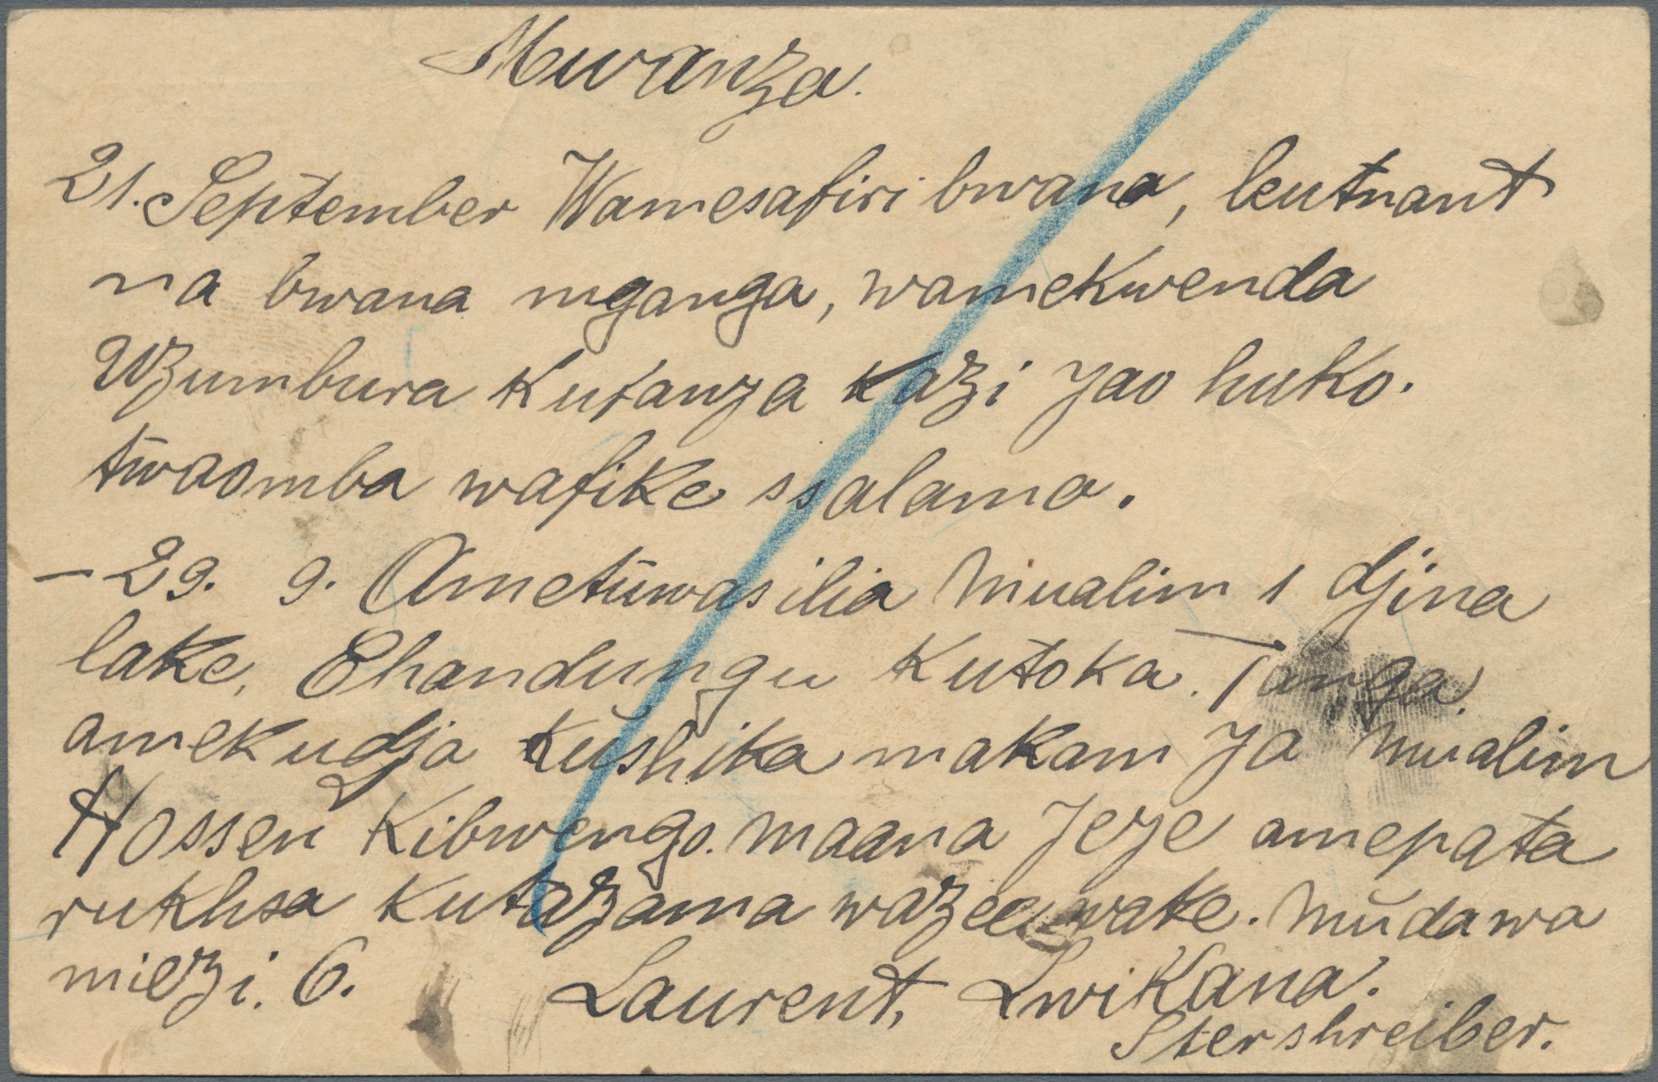 Mwanza.
21. September Wamesafiri bwana, leutnant
na bwana mganga, wamekwenda
Uzumbura Kufanza kazi yao huko.
tuwaomba wafike ssalama.
– 29. 9. Ametuwasilia Mualim 1 djina
lake, Ehandungu Kutoka. Tanga.
amekudja Kushika makam ya Mualim
Hossen Kibwengo. maana yeye amepata
rukhsa Kutazama wazee wake. Mudawa
miezi. 6.
Laurent, Lwikana.
Stershreiber.